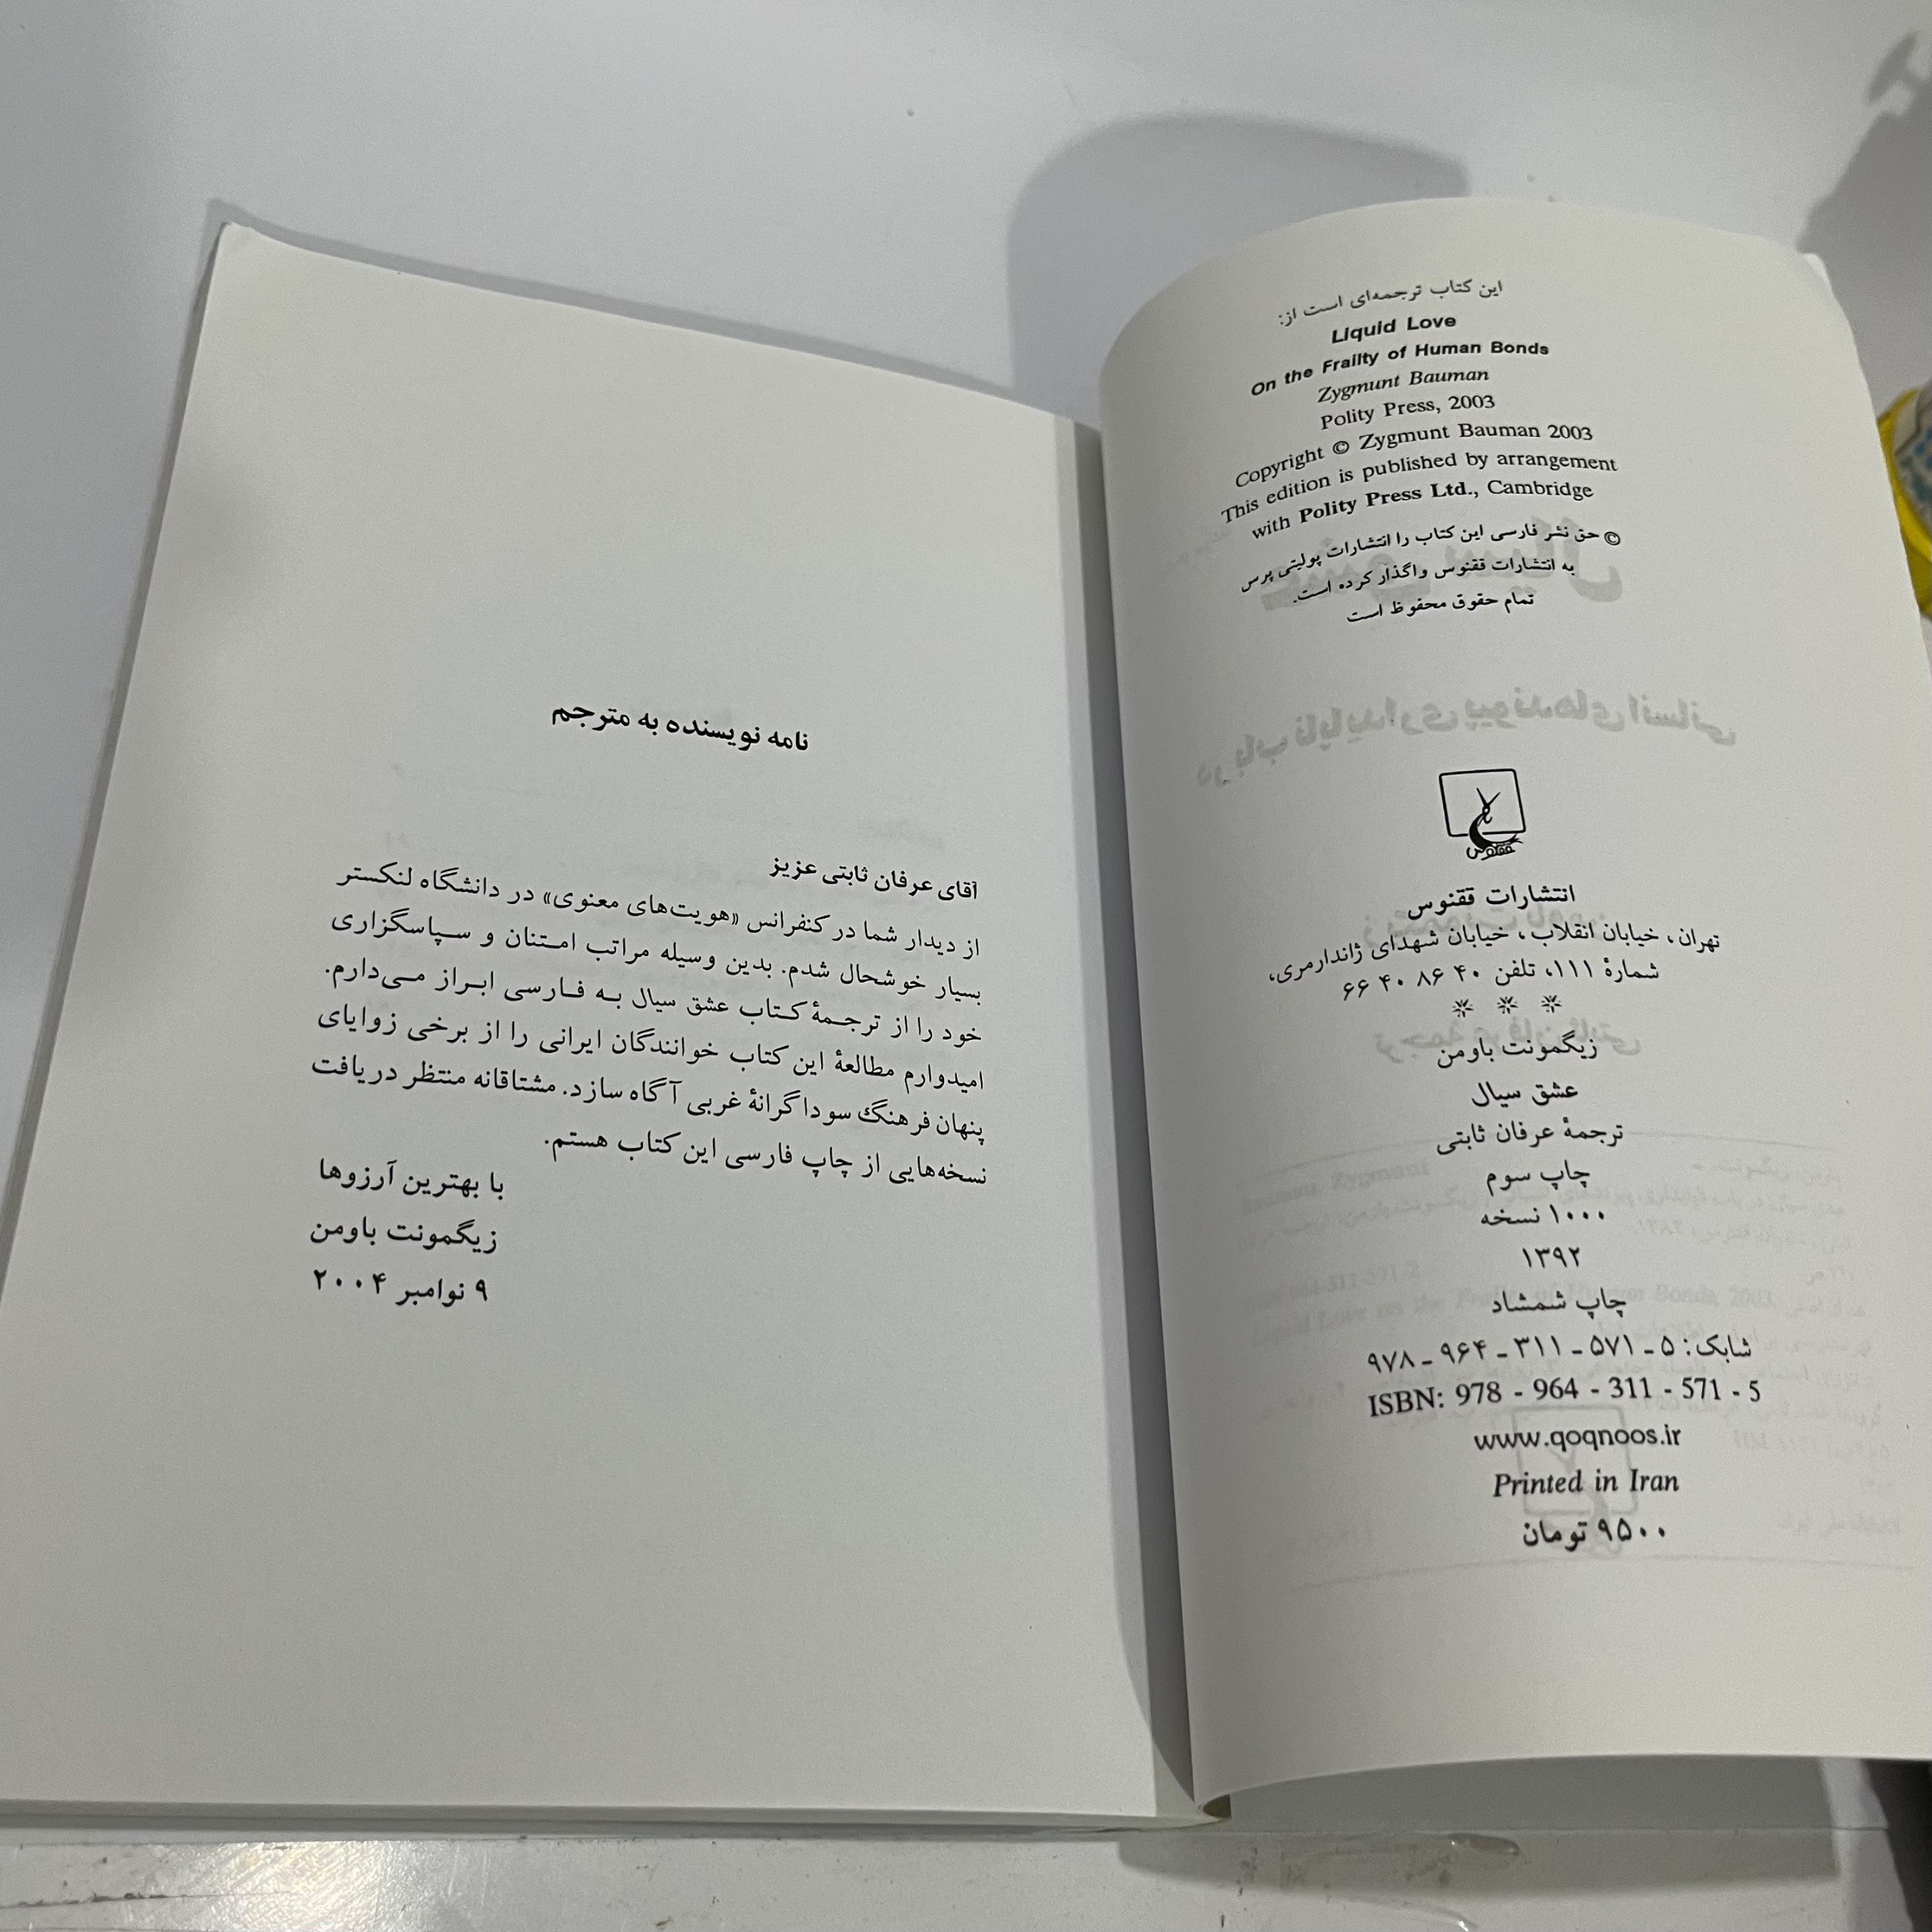 این کتاب ترجمه‌ای است از:
Liquid Love
On the Frailty of Human Bonds
Zygmunt Bauman
Polity Press, 2003
Copyright © Zygmunt Bauman 2003
This edition is published by arrangement
with Polity Press Ltd., Cambridge
© حق نشر فارسی این کتاب را انتشارات پولیتی پرس
به انتشارات ققنوس واگذار کرده است.
تمام حقوق محفوظ است
ققنوس
انتشارات ققنوس
تهران، خیابان انقلاب، خیابان شهدای ژاندارمری،
شمارهٔ ۱۱۱، تلفن ۴۰ ۸۶ ۴۰ ۶۶
* * *
زیگمونت باومن
عشق سیال
ترجمهٔ عرفان ثابتی
چاپ سوم
۱۰۰۰ نسخه
۱۳۹۲
چاپ شمشاد
شابک: ۵ ـ ۵۷۱ ـ ۳۱۱ ـ ۹۶۴ ـ ۹۷۸
ISBN: 978 - 964 - 311 - 571 - 5
www.qoqnoos.ir
Printed in Iran
۹۵۰۰ تومان
نامه نویسنده به مترجم
آقای عرفان ثابتی عزیز
از دیدار شما در کنفرانس «هویت‌های معنوی» در دانشگاه لنکستر
بسیار خوشحال شدم. بدین وسیله مراتب امتنان و سپاسگزاری
خود را از ترجمهٔ کتاب عشق سیال به فارسی ابراز می‌دارم.
امیدوارم مطالعهٔ این کتاب خوانندگان ایرانی را از برخی زوایای
پنهان فرهنگ سوداگرانهٔ غربی آگاه سازد. مشتاقانه منتظر دریافت
نسخه‌هایی از چاپ فارسی این کتاب هستم.
با بهترین آرزوها
زیگمونت باومن
۹ نوامبر ۲۰۰۴